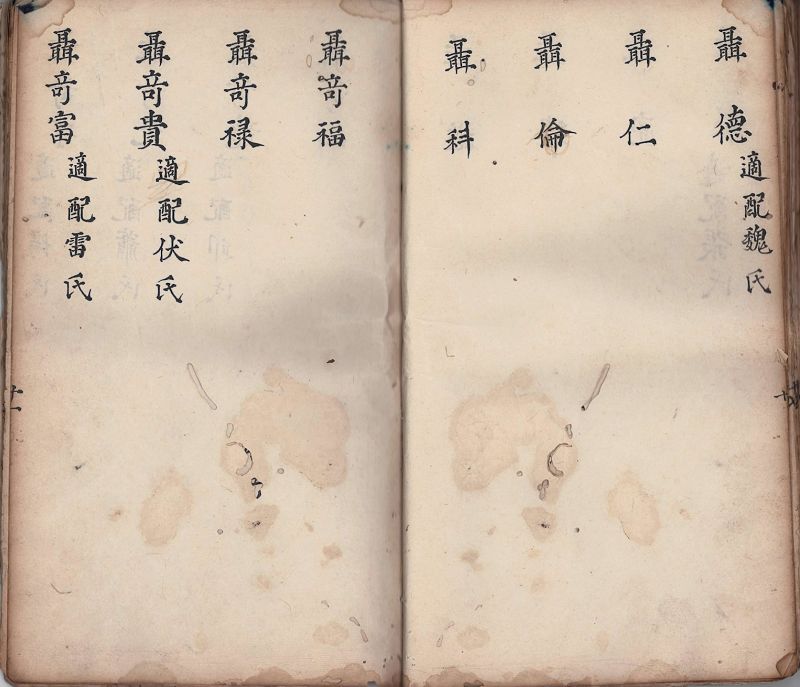 聶德適配魏氏
聶仁
聶倫
聶科
聶竒福
聶竒禄
聶竒貴適配伏氏
聶竒富適配雷氏